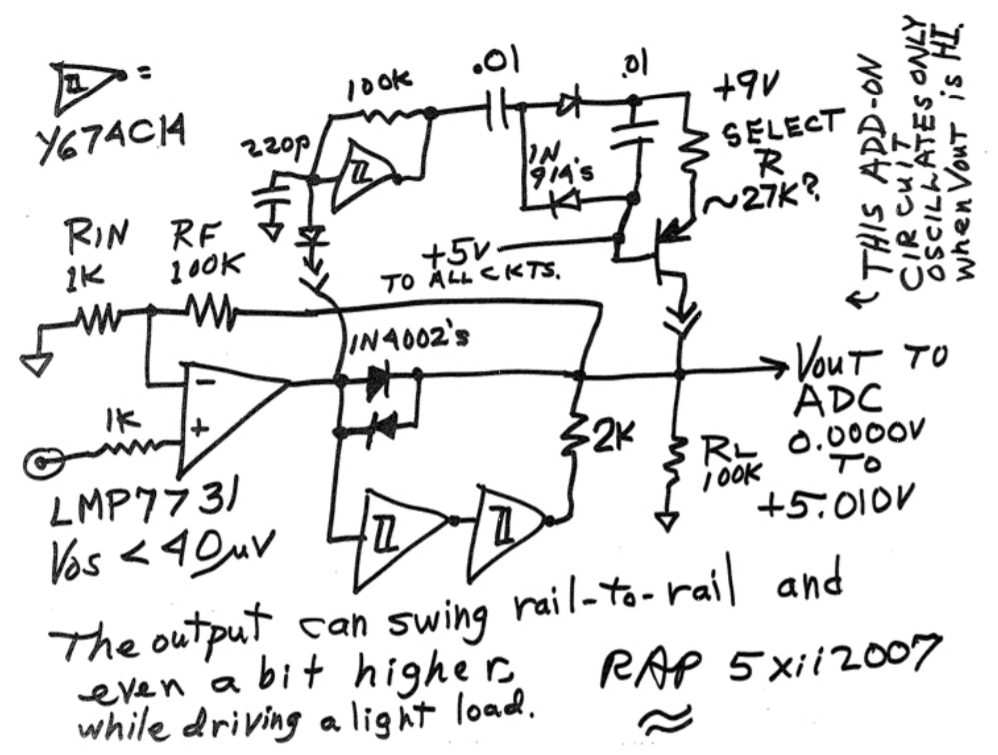 =
Y674C14
220p
100K
.01
.01
+9V
SELECT
R
~27K?
1N
914's
+5V
TO ALL CKTS.
THIS ADD-ON
CIRCUIT
OSCILLATES ONLY
when Vout is HI.
RIN
1K
RF
100K
1N4002's
-
+
1K
LMP7731
Vos < 40µV
2K
RL
100K
VOUT TO
ADC
0.0000V
TO
+5.010V
The output can swing rail-to-rail and
even a bit higher,
while driving a light load.
RAP 5xii2007